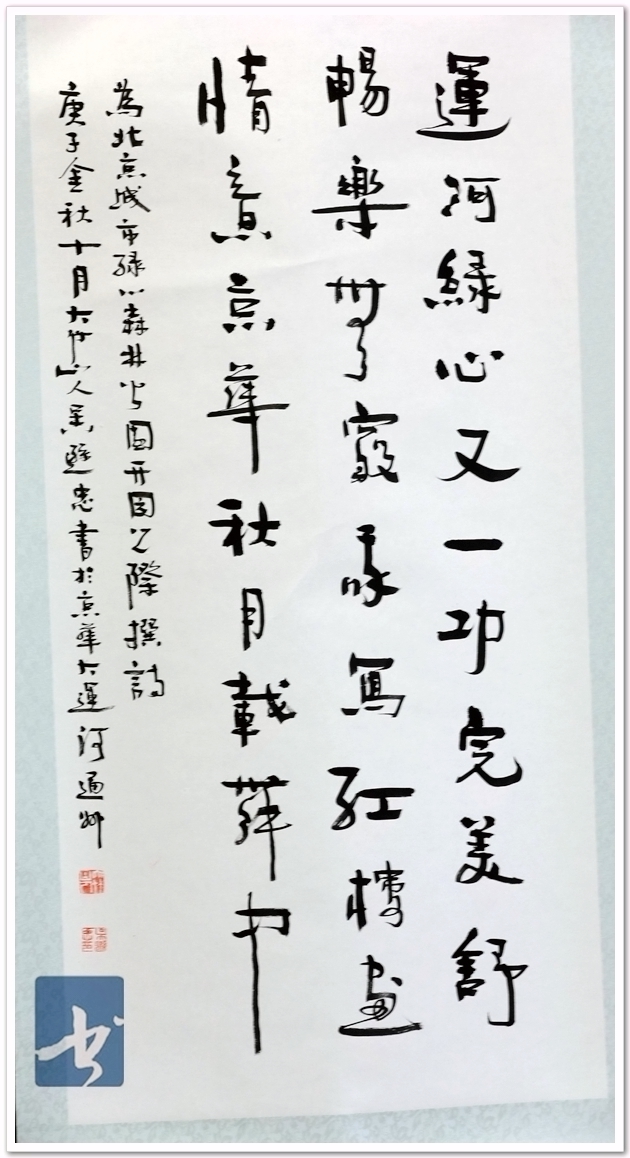 運河緑心又一功完美舒
暢樂無窮寫紅樓畫
情意京華秋月載舞中
為北京城市緑心森林公園開園之際撰詩
庚子金秋十月山人忠書於京華大運河通州
书